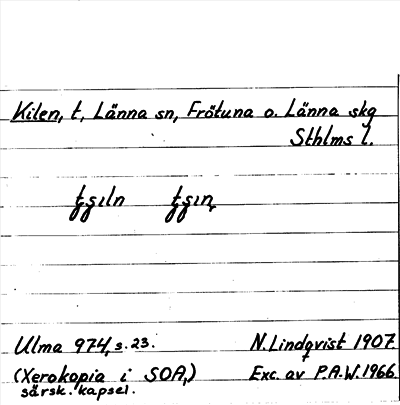 Kilen, t, Länna sn, Frötuna o. Länna skg
Sthlms l.
Ulma 974, s. 23. N. Lindqvist 1907.
(Xerokopia i SOA,) Exc. av P.A.W. 1966.
särsk. kapsel.